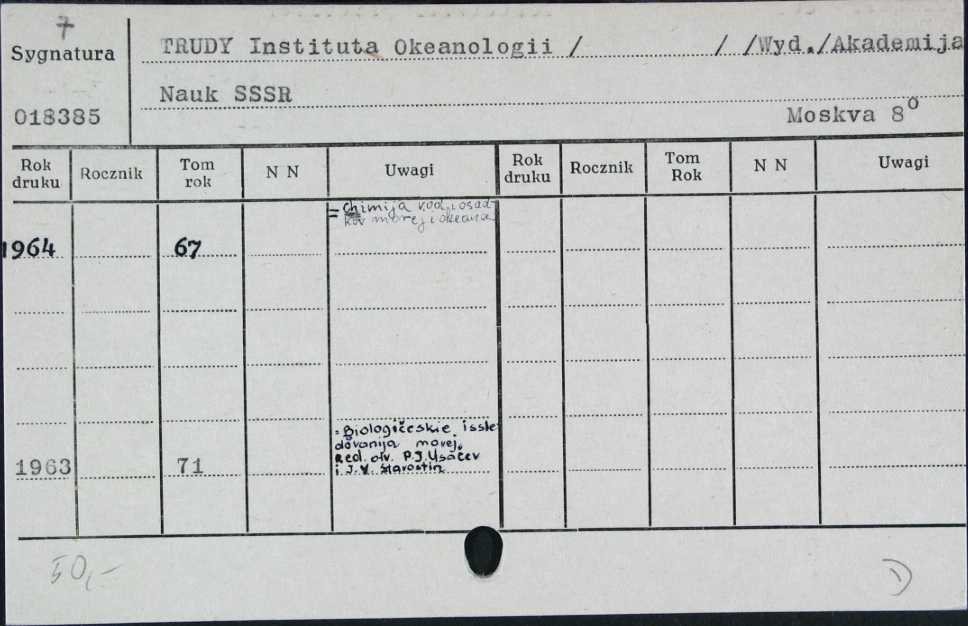 7
Sygnatura
TRUDY Instituta Okeanologii / / /Wyd./Akademija
Nauk SSSR
018385
Moskva 8°
Rok druku Rocznik Tom rok N N Uwagi Rok druku Rocznik Tom Rok N N Uwagi
= Chimija vod i osad-
kov morej i okeana
1964 67
= Biologičeskie issle
dovanija morej.
Red. otv. P.J. Usačev
1963 71 i J.V. Starostin
50,-